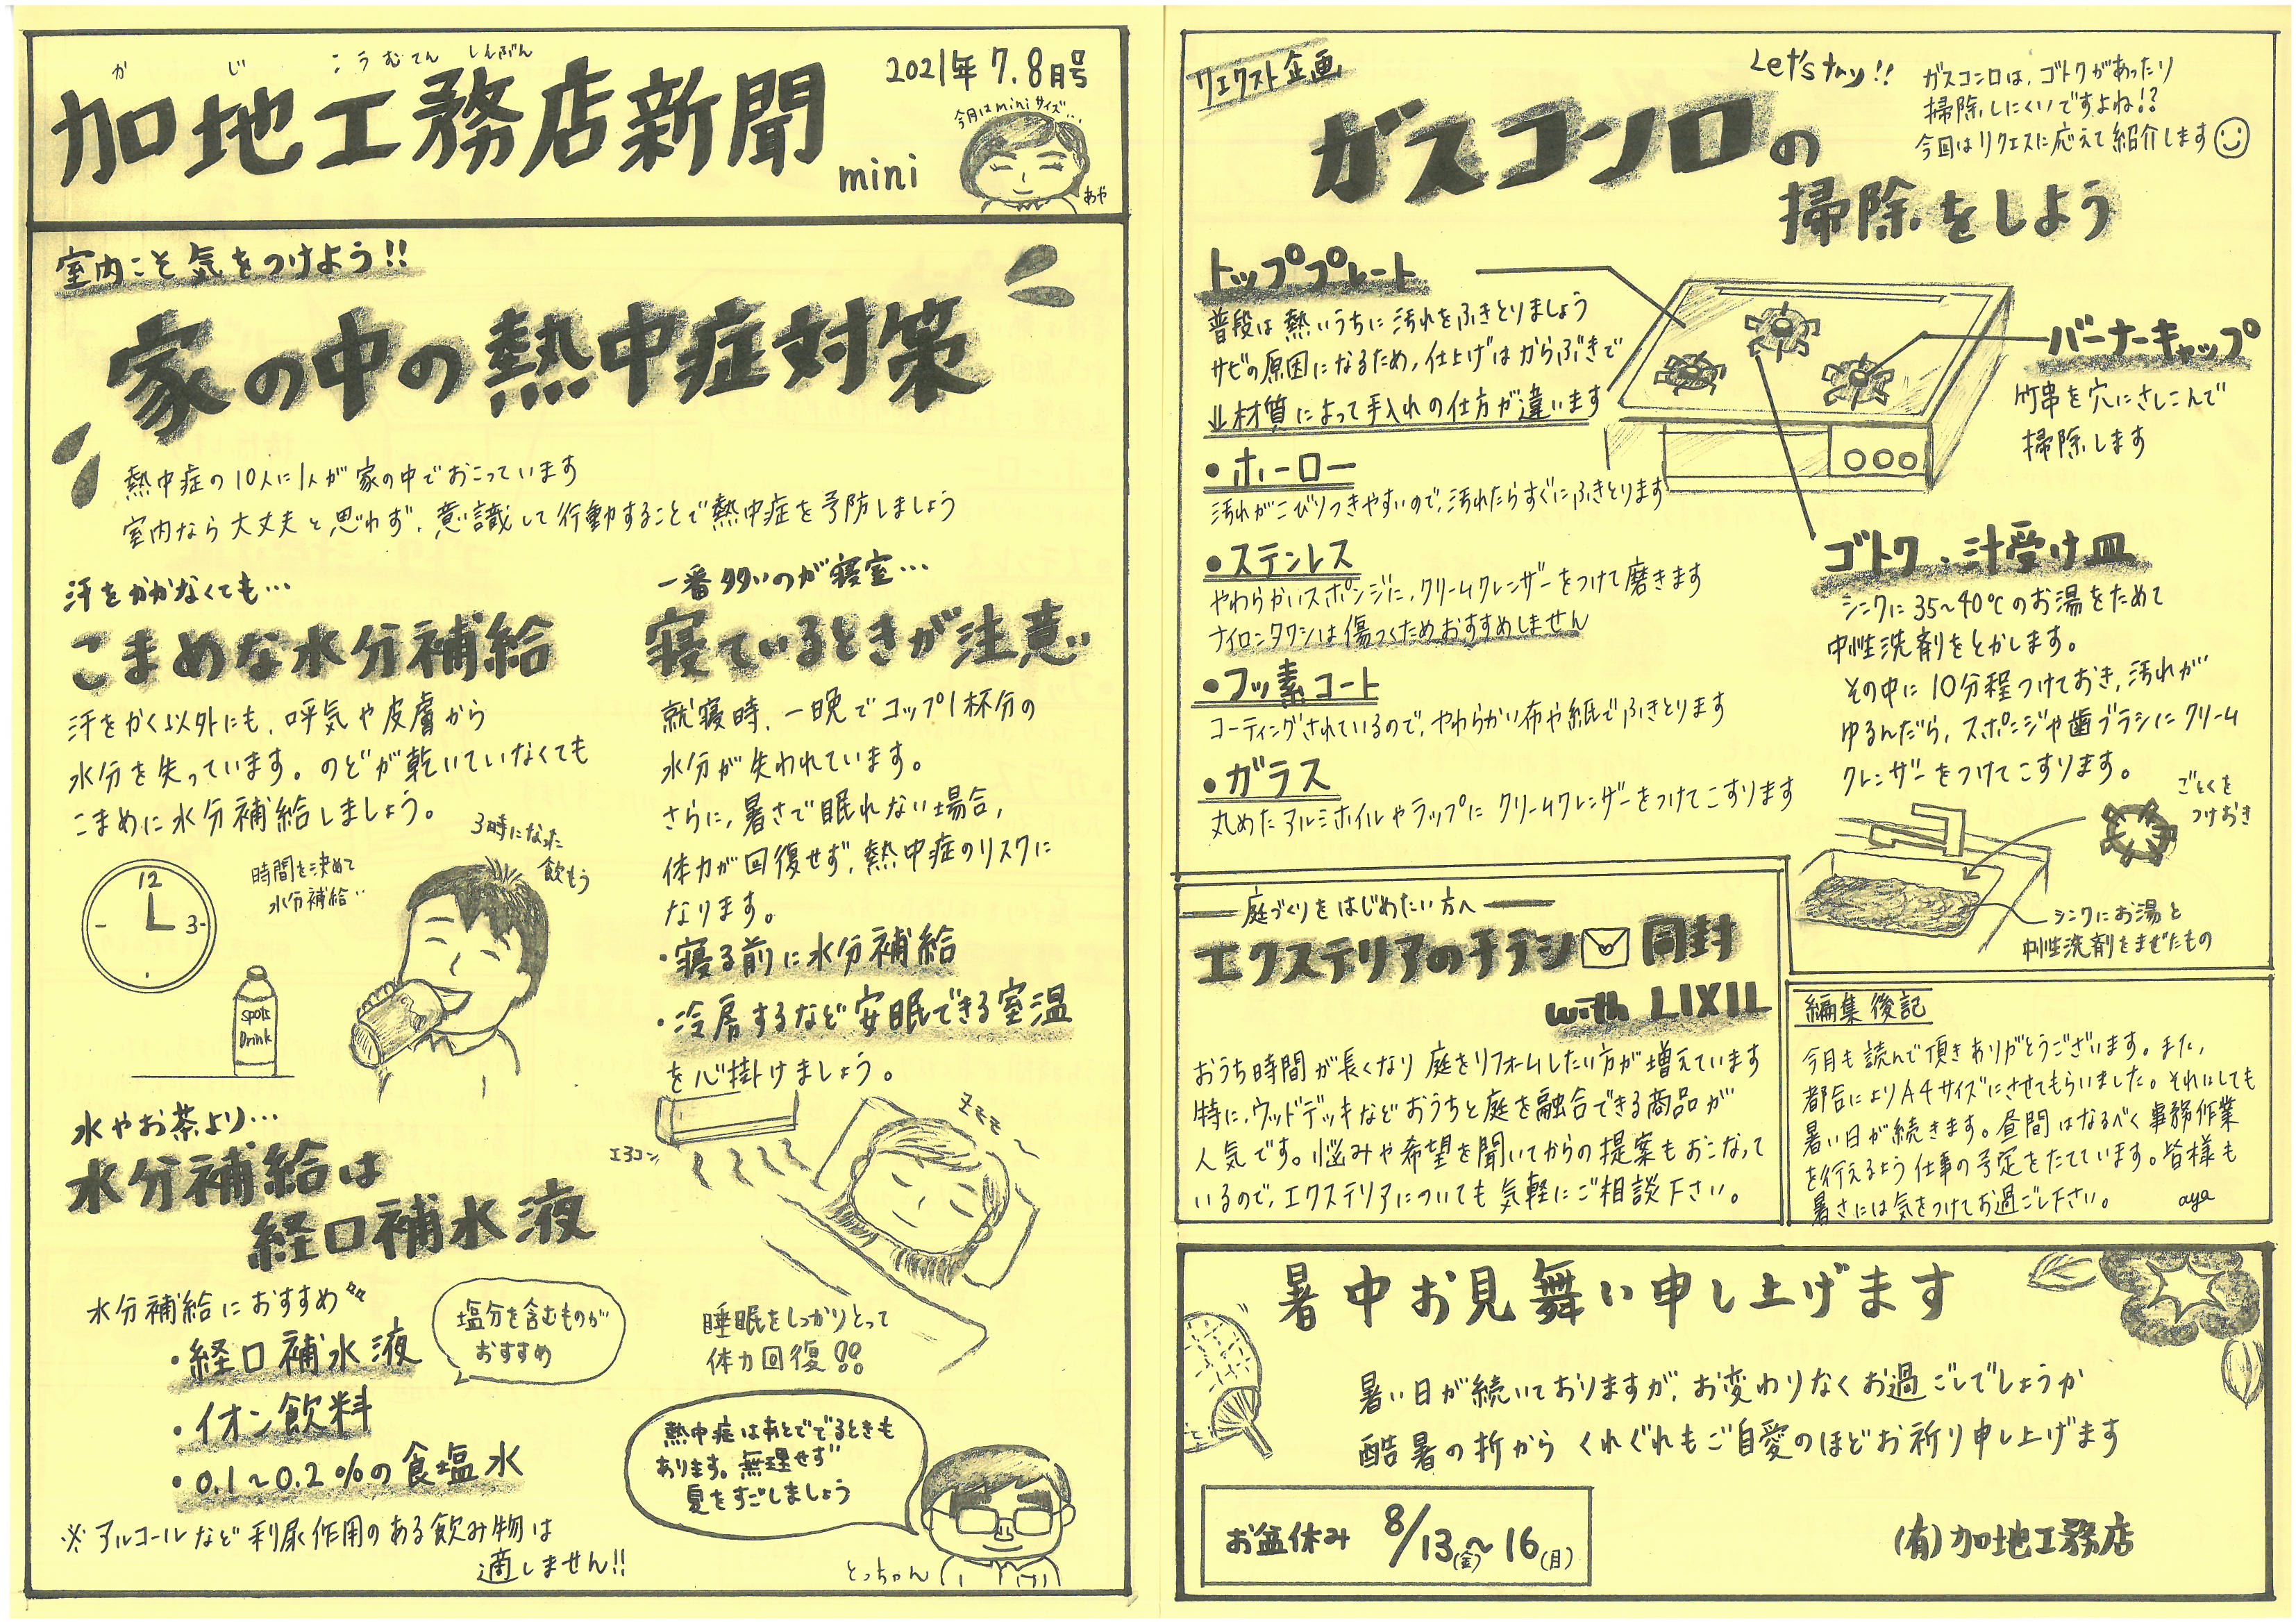 かじ こうむてん しんぶん
加地工務店新聞
mini
2021年 7.8月号
今月はminiサイズ...
あや
室内こそ気をつけよう!!
家の中の熱中症対策
熱中症の10人に1人が家の中でおこっています
室内なら大丈夫と思わず、意識して行動することで熱中症を予防しましょう
汗をかかなくても...
こまめな水分補給
汗をかく以外にも、呼気や皮膚から
水分を失っています。のどが乾いていなくても
こまめに水分補給しましょう。
3時になった
飲もう
時間を決めて
水分補給..
12
3
Spots
Drink
水やお茶より...
水分補給は
経口補水液
水分補給におすすめ
・経口補水液
・イオン飲料
・0.1~0.2%の食塩水
塩分を含むものが
おすすめ
※アルコールなど利尿作用のある飲み物は
適しません!!
一番多いのが寝室...
寝ているときが注意
就寝時、一晩でコップ1杯分の
水分が失われています。
さらに、暑さで眠れない場合、
体力が回復せず、熱中症のリスクに
なります。
・寝る前に水分補給
・冷房するなど安眠できる室温
を心掛けましょう。
エアコン
zzzz~
睡眠をしっかりとって
体力回復!!
熱中症はあとででるときも
あります。無理せず
夏をすごしましょう
とっちゃん
リクエスト企画
Let's try!!
ガスコンロの
掃除をしよう
ガスコンロは、ゴトクがあったり
掃除しにくいですよね!?
今回はリクエスに応えて紹介します
トッププレート
普段は熱いうちに汚れをふきとりましょう
サビの原因になるため、仕上げはからぶきで
↓材質によって手入れの仕方が違います
・ホーロー
汚れがこびりつきやすいので、汚れたらすぐにふきとります
・ステンレス
やわらかいスポンジに、クリームクレンザーをつけて磨きます
ナイロンタワシは傷つくためおすすめしません
・フッ素コート
コーティングされているので、やわらかい布や紙でふきとります
・ガラス
丸めたアルミホイルやラップにクリームクレンザーをつけてこすります
バーナーキャップ
竹串を穴にさしこんで
掃除します
ゴトク・汁受け皿
シンクに35~40℃のお湯をためて
中性洗剤をとかします。
その中に10分程つけておき、汚れが
ゆるんだら、スポンジや歯ブラシにクリーム
クレンザーをつけてこすります。
ごとくを
つけおき
シンクにお湯と
中性洗剤をまぜたもの
庭づくりをはじめたい方へ
エクステリアのチラシ 同封
with LIXIL
おうち時間が長くなり庭をリフォームしたい方が増えています
特に、ウッドデッキなどおうちと庭を融合できる商品が
人気です。悩みや希望を聞いてからの提案もおこなって
いるので、エクステリアについても気軽にご相談下さい。
編集後記
今月も読んで頂きありがとうございます。また、
都合によりA4サイズにさせてもらいました。それにしても
暑い日が続きます。昼間はなるべく事務作業
を行えるよう仕事の予定をたてています。皆様も
暑さには気をつけてお過ごし下さい。 aya
暑中お見舞い申し上げます
暑い日が続いておりますが、お変わりなくお過ごしでしょうか
酷暑の折から くれぐれもご自愛のほどお祈り申し上げます
お盆休み 8/13(金)~16(月)
(有)加地工務店